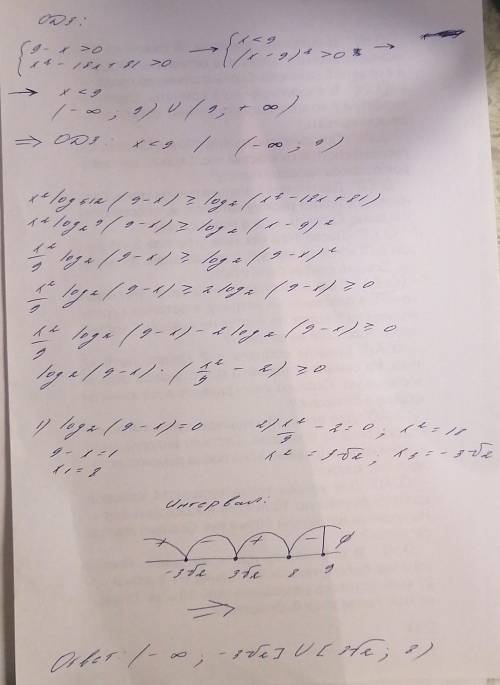 ОДЗ:
{ 9-x>0 → { x<9
x²-18x+81>0 (x-9)²>0 →
→ x<9
(-∞; 9) ∪ (9; +∞)
⇒ ОДЗ: x<9 / (-∞; 9)
x² log512 (9-x) ≥ log2 (x²-18x+81)
x² log2 9 (9-x) ≥ log2 (x-9)²
x²/9 log2 (9-x) ≥ log2 (9-x)²
x²/9 log2 (9-x) ≥ 2 log2 (9-x) ≥ 0
x²/9 log2 (9-x) - 2 log2 (9-x) ≥ 0
log2 (9-x) · (x²/9 - 2) ≥ 0
1) log2 (9-x) = 0 2) x²/9 - 2 = 0; x² = 18
9-x=1 x2 = 3√2; x3 = -3√2
x1=8
Интервал:
+ - + - ∅
-3√2 3√2 8 9
⇒
Ответ: (-∞; -3√2] ∪ [3√2; 8)